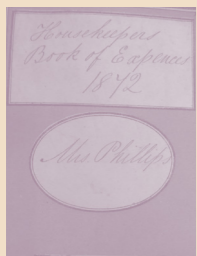 Housekeepers
Book of Expences
1872
Mrs Phillips